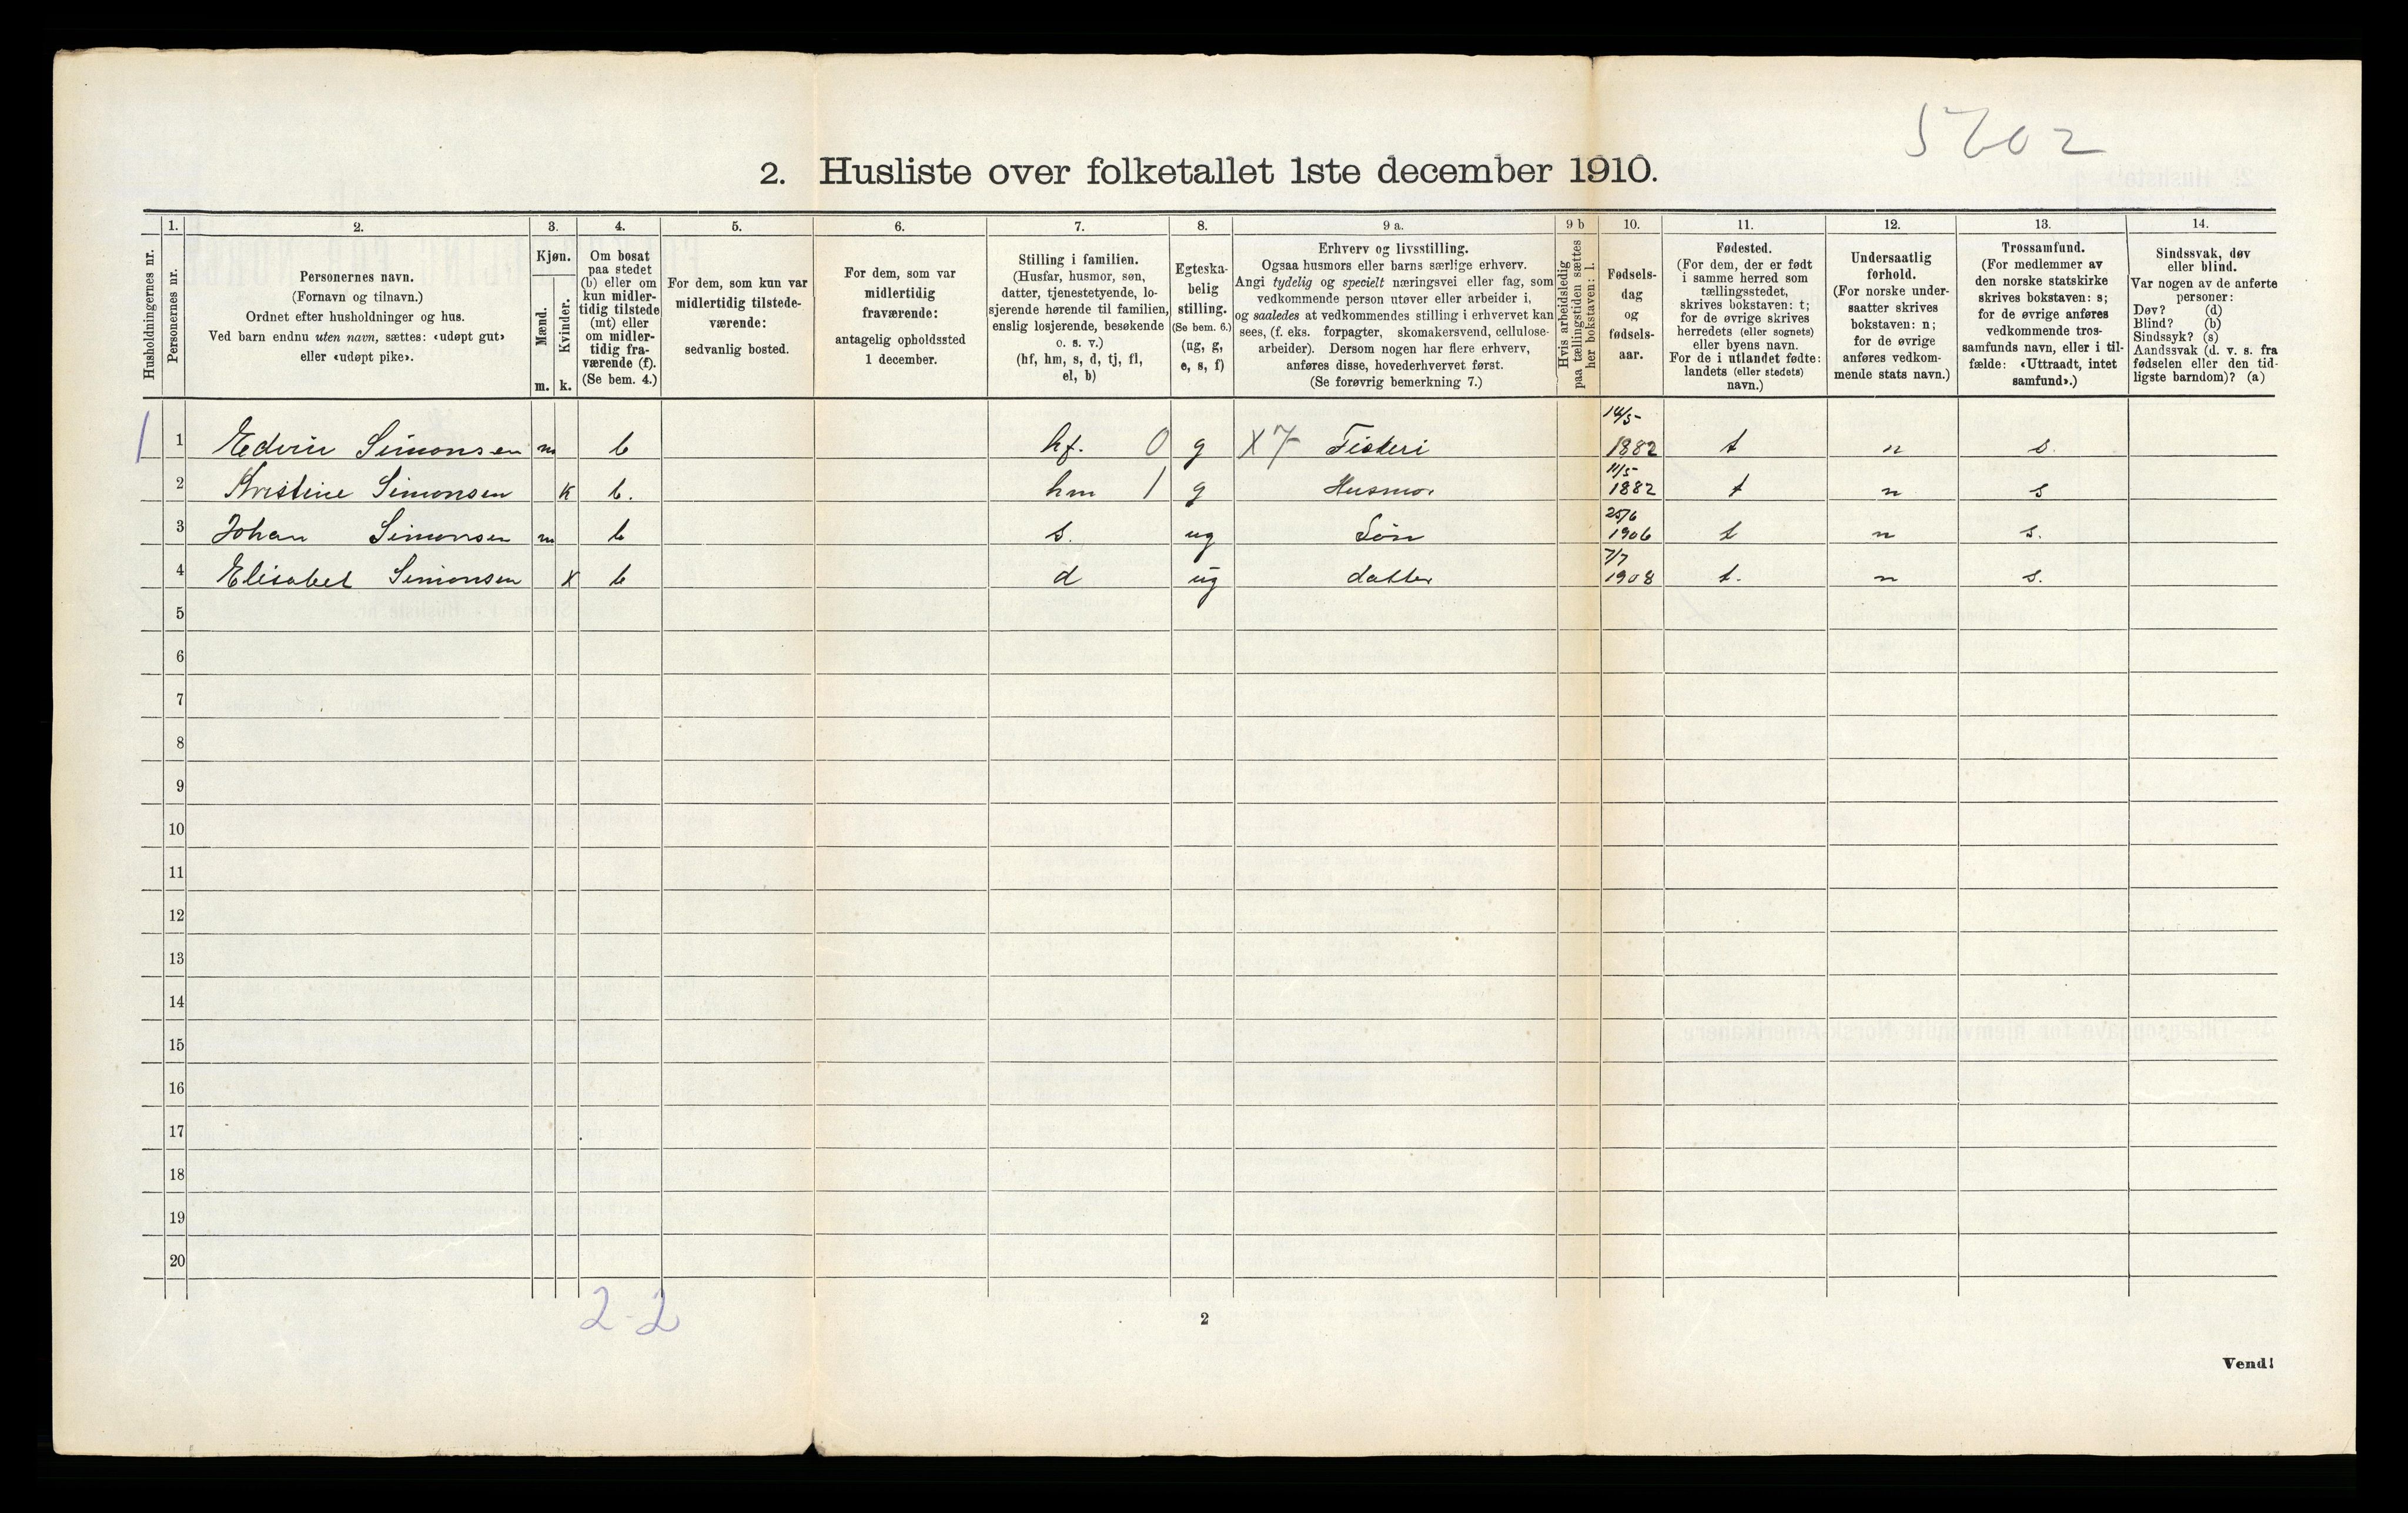 5202
2. Husliste over folketallet 1ste december 1910.
Husholdningernes nr.
1.
Personernes nr.
2.
Personernes navn.
(Fornavn og tilnavn.)
Ordnet efter husholdninger og hus.
Ved barn endnu uten navn, sættes: «udøpt gut»
eller «udøpt pike».
3.
Kjøn.
Mænd.
Kvinder.
m. k.
4.
Om bosat
paa stedet
(b) eller om
kun midler-
tidig tilstede
(mt) eller
om midler-
tidig fra-
værende (f).
(Se bem. 4.)
5.
For dem, som kun var
midlertidig tilstede-
værende:
sedvanlig bosted.
6.
For dem, som var
midlertidig
fraværende:
antagelig opholdssted
1 december.
7.
Stilling i familien.
(Husfar, husmor, søn,
datter, tjenestetyende, lo-
sjerende hørende til familien,
enslig losjerende, besøkende
o. s. v.)
(hf, hm, s, d, tj, fl,
el, b)
8.
Egteska-
belig
stilling.
(Se bem. 6.)
(ug, g,
e, s, f)
9 a.
Erhverv og livsstilling.
Ogsaa husmors eller barns særlige erhverv.
Angi tydelig og specielt næringsvei eller fag, som
vedkommende person utøver eller arbeider i,
og saaledes at vedkommendes stilling i erhvervet kan
sees, (f. eks. forpagter, skomakersvend, cellulose-
arbeider). Dersom nogen har flere erhverv,
anføres disse, hovederhvervet først.
(Se forøvrig bemerkning 7.)
9 b
Hvis arbeidsledig
paa tællingstiden sættes
her bokstaven: l.
10.
Fødsels-
dag
og
fødsels-
aar.
11.
Fødested.
(For dem, der er født
i samme herred som
tællingsstedet,
skrives bokstaven: t;
for de øvrige skrives
herredets (eller sognets)
eller byens navn.
For de i utlandet fødte:
landets (eller stedets)
navn.)
12.
Undersaatlig
forhold.
(For norske under-
saatter skrives
bokstaven: n;
for de øvrige
anføres vedkom-
mende stats navn.)
13.
Trossamfund.
(For medlemmer av
den norske statskirke
skrives bokstaven: s;
for de øvrige anføres
vedkommende tros-
samfunds navn, eller i til-
fælde: «Uttraadt, intet
samfund».)
14.
Sindssvak, døv
eller blind.
Var nogen av de anførte
personer:
Døv? (d)
Blind? (b)
Sindssyk? (s)
Aandssvak (d. v. s. fra
fødselen eller den tid-
ligste barndom)? (a)
1 1 Edvin Simonsen m b hf. 0 g X 7 Fiskeri 14/5- 1882 t n s.
2 Kristine Simonsen k b. hm 1 g Husmor 11/5- 1882 t n s
3 Johan Simonsen m b s. ug Søn 25/6 1906 t n s.
4 Elisabet Simonsen k b d ug datter 7/7 1908 t. n s.
5
6
7
8
9
10
11
12
13
14
15
16
17
18
19
20
2-2
2
Vend!